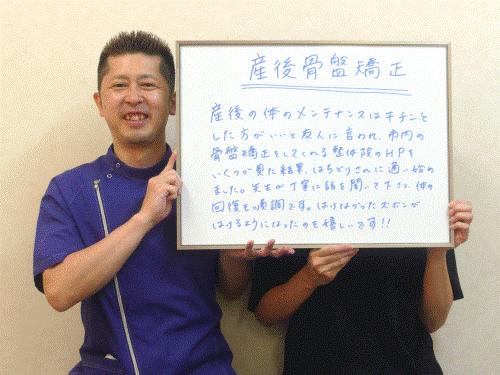 産後骨盤矯正
産後の体のメンテナンスはキチンと
した方がいいと友人に言われ、市内の
骨盤矯正をしてくれる整体院のHPを
いくつか見た結果、はちどりさんに通い始め
ました。先生が丁寧に話を聞いて下さり、体の
回復も順調です。はけなかったズボンが
はけるようになったのも嬉しいです!!